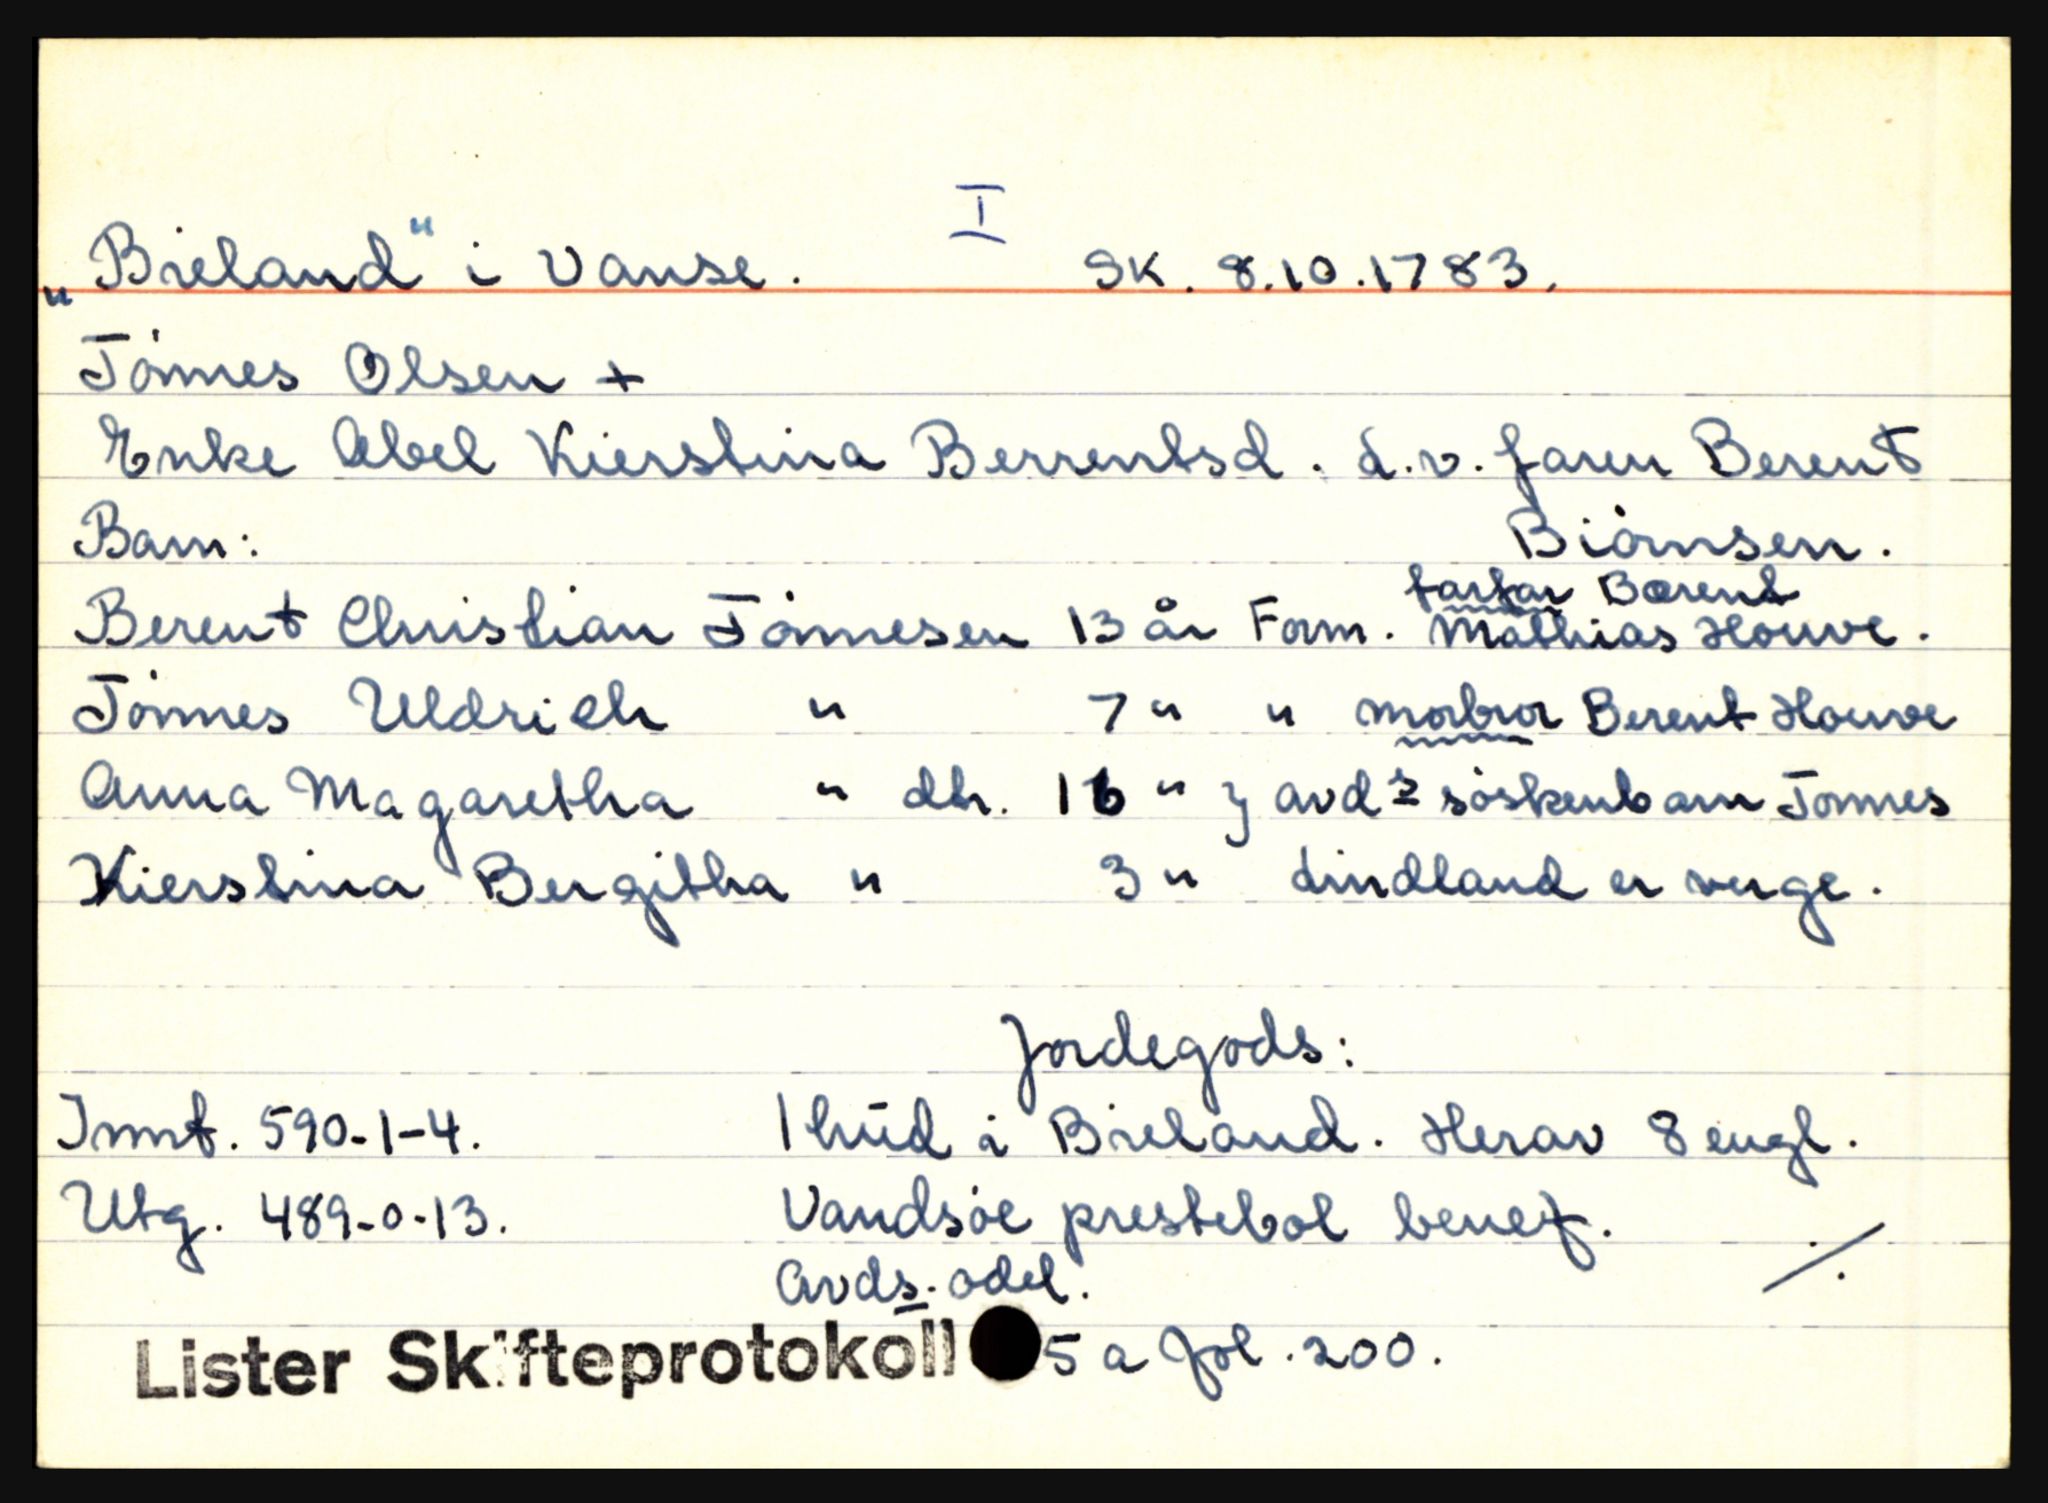 I
"Bieland" i Vanse. SK. 8.10.1783.
Tönnes Olsen +
Enke Abel Kierstina Berrentsd. d.v. faren Berent
Barn: Biörnsen.
farfar Bærent
Berent Christian Tönnesen 13 år Form. Mathias Houve.
Tönnes Uldrich " 7 " " morbror Berent Houve
Anna Magaretha " dtr. 16 " } avds söskenbarn Tönnes
Kierstina Bergitha " 3 " Lindland er verge.
Jordegods:
Innt. 590-1-4. 1 hud i Bieland. Herav 8 engl.
Utg. 489-0-13. Vandsöe prestebol benef.
Avds. odel. ./.
Lister Skifteprotokoll 5 a fol. 200.